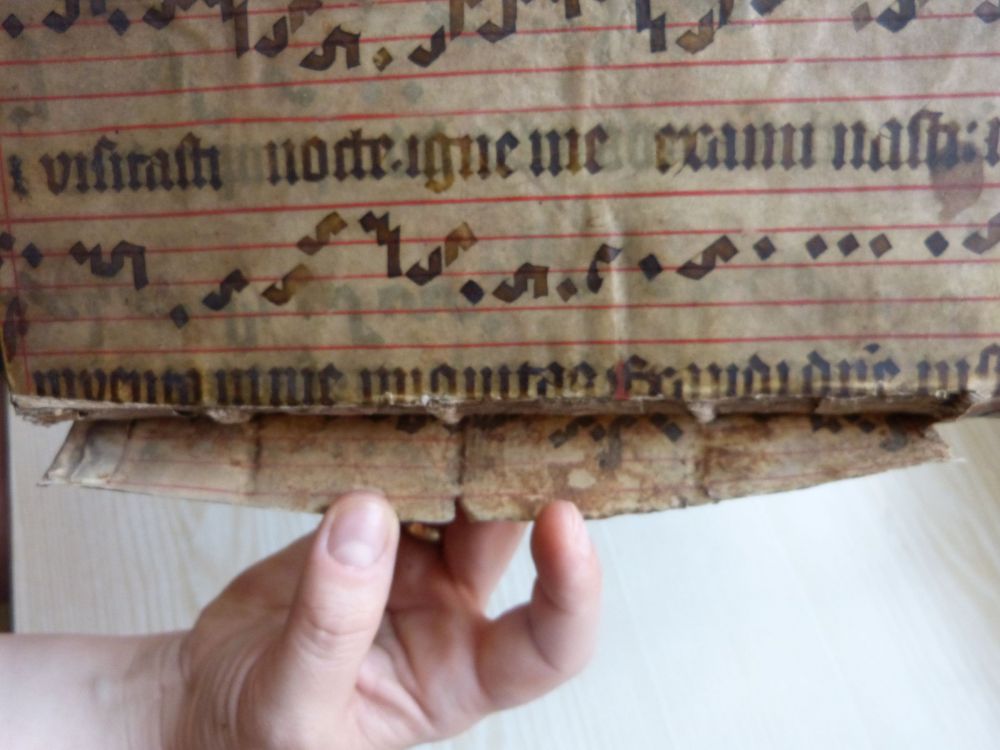 visitasti nocte igne me exami nasti
inventa in me iniquitas Exaudi dñe iust